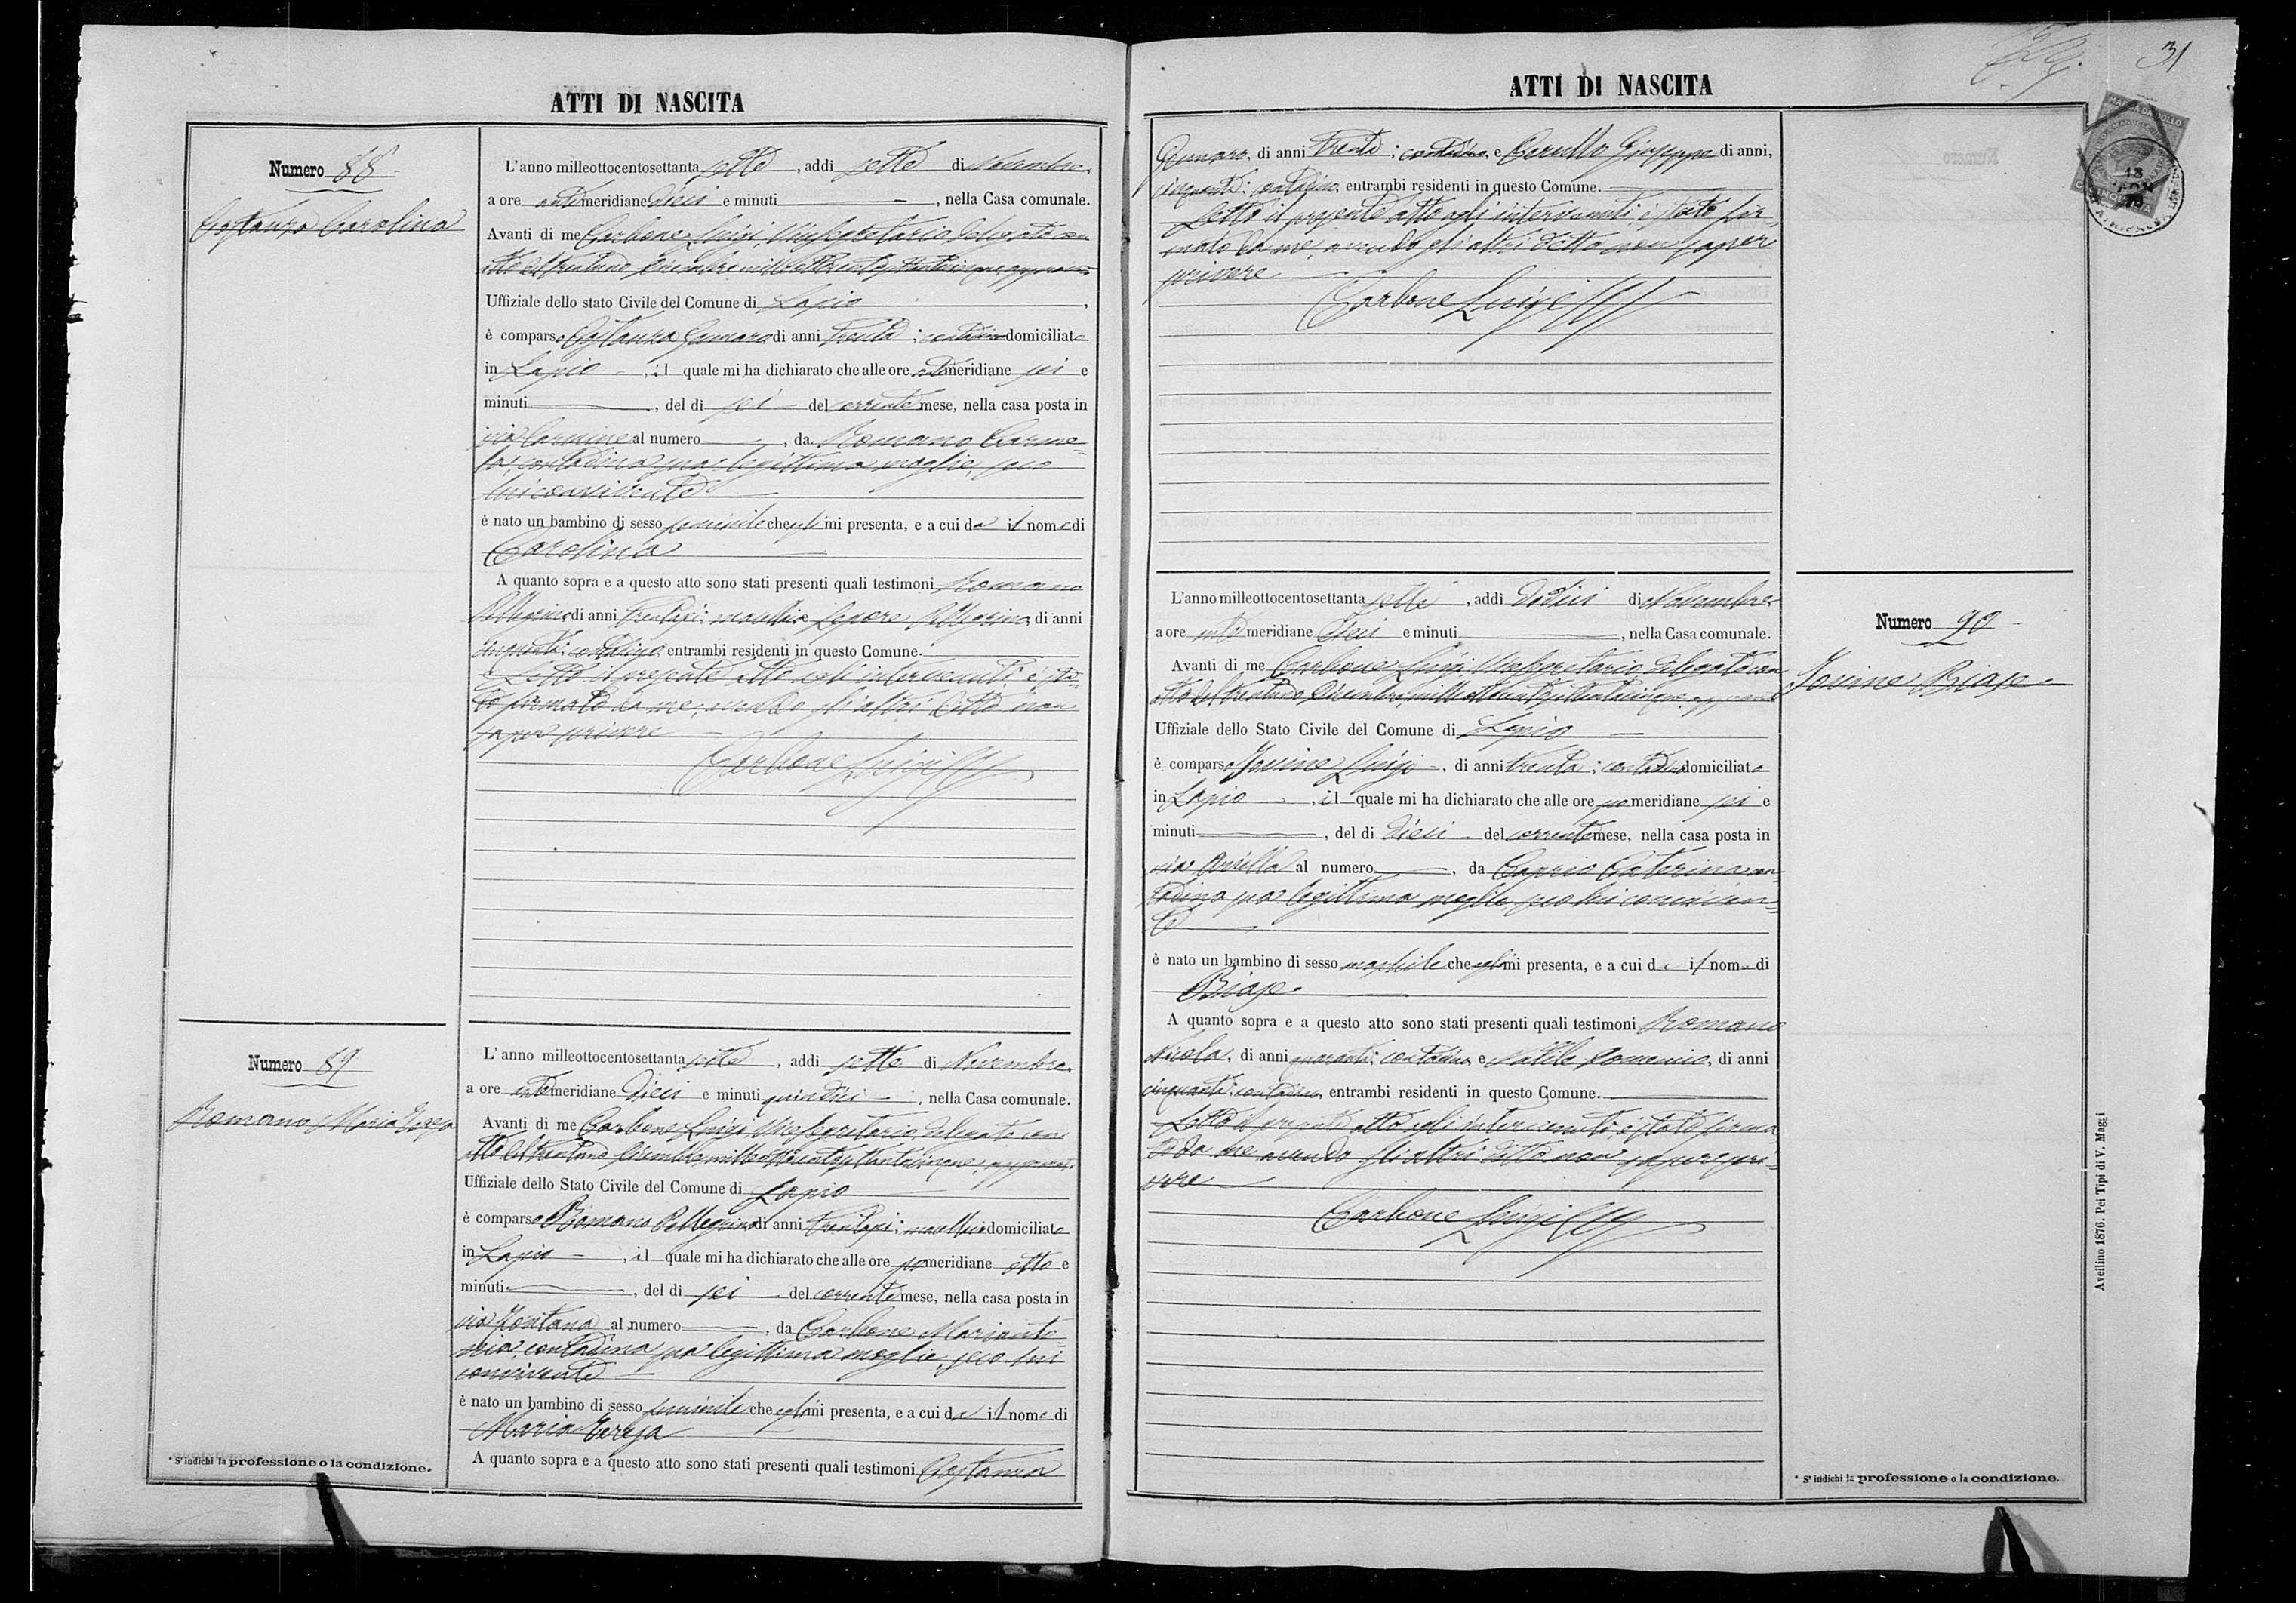 ATTI DI NASCITA
Numero 88
Costanza Carolina
L'anno milleottocentosettanta sette, addi sette di Novembre,
a ore antimeridiane dieci e minuti , nella Casa comunale.
Avanti di me Carbone Luigi Vicesegretario delegato con
atto del trentuno Dicembre milleottocentosettantacinque, approvato
Uffiziale dello stato Civile del Comune di Lapio ,
è comparso Costanza Gennaro di anni trenta; contadino domiciliato
in Lapio , il quale mi ha dichiarato che alle ore antimeridiane sei e
minuti , del di sei del corrente mese, nella casa posta in
via Carmine al numero , da Romano Carme=
la, contadina sua legittima moglie, seco
lui convivente
è nato un bambino di sesso feminile che egli mi presenta, e a cui da il nome di
Carolina
A quanto sopra e a questo atto sono stati presenti quali testimoni Romano
Pellegrino di anni trentasei; mulattiere e Lepore Pellegrino, di anni
cinquanta; contadino, entrambi residenti in questo Comune.
Letto il presente atto agli intervenuti è sta=
to firmato da me, avendo gli altri detto non
saper scrivere
Carbone Luigi
Numero 89
Romano Maria Teresa
L'anno milleottocentosettanta sette, addi sette di Novembre,
a ore antimeridiane dieci e minuti quindici , nella Casa comunale.
Avanti di me Carbone Luigi Vicesegretario delegato con
atto del trentuno Dicembre milleottocentosettantacinque, approvato
Uffiziale dello Stato Civile del Comune di Lapio
è comparso Romano Pellegrino di anni trentasei; mulattiere domiciliato
in Lapio , il quale mi ha dichiarato che alle ore pomeridiane otto e
minuti , del di sei del corrente mese, nella casa posta in
via Fontana al numero , da Carbone Marianto=
nia, contadina sua legittima moglie, seco lui
convivente
è nato un bambino di sesso feminile che egli mi presenta, e a cui da il nome di
Maria Teresa
A quanto sopra e a questo atto sono stati presenti quali testimoni Costanza
* S'indichi la professione o la condizione.
31
ATTI DI NASCITA
Gennaro, di anni trenta; contadino, e Cerullo Giuseppe di anni,
cinquanta; contadino, entrambi residenti in questo Comune.
Letto il presente atto agli intervenuti è stato fir=
mato da me, avendo gli altri detto non saper
scrivere
Carbone Luigi
L'anno milleottocentosettanta sette, addi dodici di Novembre,
a ore antimeridiane dieci e minuti , nella Casa comunale.
Avanti di me Carbone Luigi Vicesegretario delegato con
atto del trentuno Dicembre milleottocentosettantacinque, approvato
Uffiziale dello Stato Civile del Comune di Lapio
è comparso Iovine Luigi , di anni trenta; contadino domiciliato
in Lapio , il quale mi ha dichiarato che alle ore pomeridiane sei e
minuti , del di dieci del corrente mese, nella casa posta in
via al numero , da Caprio Caterina con=
tadina sua legittima moglie seco lui conviven=
te
è nato un bambino di sesso maschile che egli mi presenta, e a cui da il nome di
Biase
A quanto sopra e a questo atto sono stati presenti quali testimoni Romano
Nicola, di anni quaranta; contadino, e Domenico, di anni
cinquanta; contadino, entrambi residenti in questo Comune.
Letto il presente atto agli intervenuti è stato firma
to da me avendo gli altri detto non sapere scri=
vere
Carbone Luigi
Numero 90
Iovine Biase
* S'indichi la professione o la condizione.
Avellino 1876. Pei Tipi di V. Maggi